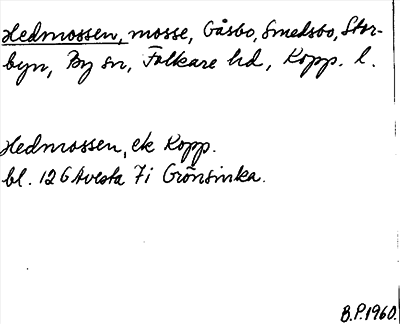 Hedmossen, mosse, Gåsbo, Smedsbo, Stor-
byn, By sn, Folkare hd, Kopp. l.
Hedmossen, ek Kopp.
bl. 12G Avesta 7i Grönsinka.
B.P.1960.